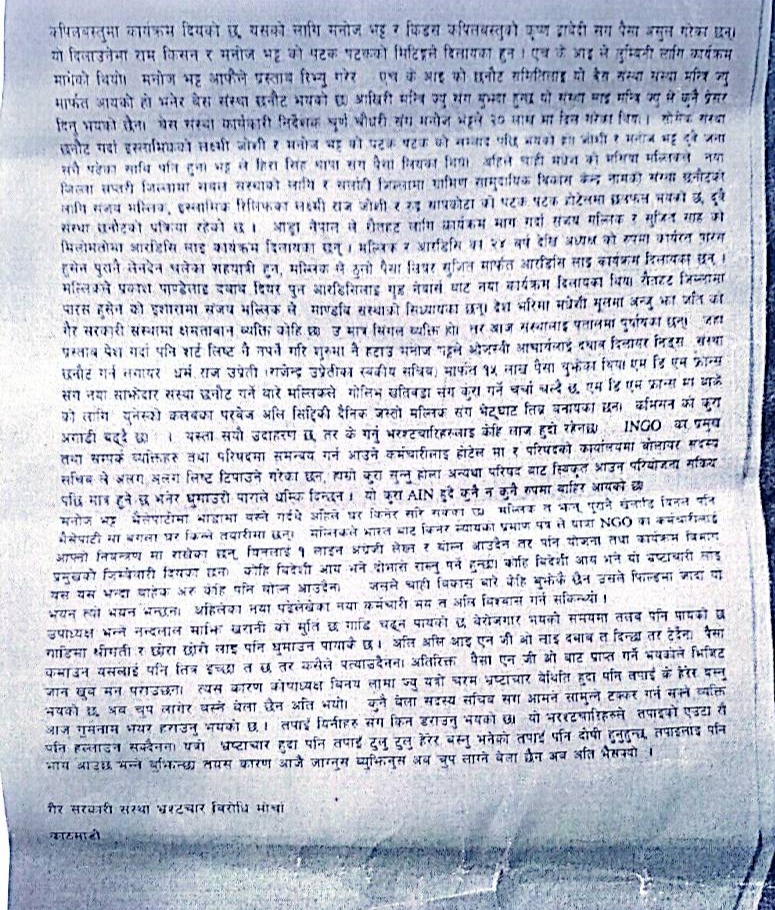 कपिलबस्तुमा कार्यक्रम दियको छ, यसको लागि मनोज भट्ट र किडस कपिलबस्तुको कृष्ण द्विवेदी संग पैसा असुल गरेका छन्।
यो दिलाउनेमा राम किसन र मनोज भट्ट को पटक पटकको मिटिङ्ले दिलायका हुन । एच के आइ ले लुम्बिनी लागि कार्यक्रम
मागेको थियो। मनोज भट्ट आफैले प्रस्ताव रिभ्यु गरेर एच के आइ को छनौट समितिलाइ यो बेस संस्था मन्त्रि ज्यु
मार्फत आयको हो भनेर बेस संस्था छनौट भयको छ। आखिरी मन्त्रि ज्यु संग बुझ्दा हुन्छ यो संस्था लाइ मन्त्रि ज्यु ले कुनै प्रेसर
दिनु भयको छैन। बेस संस्था कार्यकारी निर्देशक चुर्ण चौधरी संग मनोज भट्टले २० लाख मा दिल गरेका थिय।
छनौट गर्दा इस्लामिकको लक्ष्मी जोशी र मनोज भट्ट को पटक पटक को सम्वाद पछि भयको हो। जोशी र मनोज भट्ट दुबै जना
संगै पढेका साथि पनि हुन। भट्ट ले हिरा सिंह थापा संग पैसा लियका थिय। अहिले चाही मधेश को मसिया मल्लिकले नया
जिल्ला सप्तरी जिल्लामा सबल संस्थाको लागि र सर्लाही जिल्लामा ग्रामिण सामुदायिक बिकास केन्द्र नामको संस्था छनौटको
लागि संजय मल्लिक, इस्लामिक रिलिफका लक्ष्मी राज जोशी र रुद्र सापकोटा को पटक पटक होटेलमा छलफल भयको छ, दुबै
संस्था छनौटको प्रक्रिया रहेको छ । आड्रा नेपाल ले रौतहट लागि कार्यक्रम माग गर्दा संजय मल्लिक र सुजित साह को
मिलोमतोमा आरडिसि लाइ कार्यक्रम दिलायका छन् । मल्लिक र आरडिसि का २४ बर्ष देखि अध्यक्ष को रुपमा कार्यरत पारस
हुसेन पुरानै लेनदेन चलेका सहयात्री हुन, मल्लिक ले ठुलो पैसा लियर सुजित मार्फत आरडिसि लाइ कार्यक्रम दिलायका छन् ।
मल्लिकले प्रकाश पाण्डेलाइ दबाब दियर पुन आरडिसिलाइ गुड नेबर्स बाट नया कार्यक्रम दिलायका थिय। रौतहट जिल्लामा
पारस हुसेन को इशारामा संजय मल्लिक ले माण्डवि संस्थाको सिध्यायका छन्। देश भरिमा मधेशी मूलमा अन्जु झा जति को
गैर सरकारी संस्थामा क्षमताबान ब्यक्ति कोहि छ। उ मात्र सिंगल ब्यक्ति हो। तर आज संस्थालाइ पतालमा पुर्यायका छन्। जहा
प्रस्ताब पेश गर्दा पनि शर्ट लिष्ट नै नपर्ने गरि शुरुमा नै हटाउ मनोज भट्टले ओजस्वी आचार्यलाई दबाब दिलायर निड्स संस्था
छनौट गर्न लगायर धर्म राज उप्रेती (राजेन्द्र उप्रेतीका स्वकीय सचिब) मार्फत १५ लाख पैसा बुझेका थिय। एम डि एम फ्रान्स
संग नया साझेदार संस्था छनौट गर्ने बारे मल्लिकले गोबिन्द खतिवडा संग कुरा गर्ने चर्चा चल्दै छ, एम डि एम फ्रान्स मा बार्के
को लागि युनेस्को क्लबका परबेज अलि सिद्दिकी दैनिक जस्तो मल्लिक संग भेटघाट तिब्र बनायका छन्। कमिसन को कुरा
अगाडी बढ्दै छ। । यस्ता सयौ उदाहरण छ, तर के गर्नु भ्रस्टचारिहरुलाइ केहि लाज हुदो रहेनछ। INGO का प्रमुख
तथा सम्पर्क ब्यक्तिहरु तथा परिषदमा समन्वय गर्न आउने कर्मचारीलाइ होटेल मा र परिषदको कार्यालयमा बोलायर सदस्य
सचिब ले अलग, अलग लिष्ट टिपाउने गरेका छन, हाम्रो कुरा सुन्नु होला अन्यथा परिषद बाट स्विकृत आउन परियोजना सकिय
पछि मात्र हुने छ भनेर घुमाउरो पाराले धम्कि दिन्छन । यो कुरा AIN हुदै कुनै न कुनै रुपमा बाहिर आयको छ।
मनोज भट्ट भैसेपाटीमा भाडामा बस्ने गर्दथे अहिले घर किनेर सरि सकेका छ। मल्लिक त झन् पुराने खेलाडि यिनले पनि
भैसेपाटी मा बंगला घर किन्ने तयारीमा छन्। मल्लिकले भारत बाट किनेर ल्यायको प्रमाण पत्र ले पाया NGO का कर्मचारीलाइ
आफ्नो नियन्त्रण मा राखेका छन्, यिनलाई १ लाइन अंग्रेजी लेख्न र बोल्न आउदैन तर पनि योजना तथा कार्यक्रम बिभाग
प्रमुखको जिम्मेवारी दियका छन। कोहि बिदेशी आय भने दोभासे राख्नु पर्ने हुन्छ। कोहि बिदेशी आय भने यो भ्रष्टाचारी लाइ
यस यस भन्दा बाहेक अरु केहि पनि बोल्न आउदैन। जसले चाही बिकास बारे केहि बुझेकै छैन उसले फिल्डमा जादा यो
भयन त्यो भयन भन्छन। अहिलेका नया पढेलेखेका नया कर्मचारी मय त अलि विश्वास गर्न सकिन्थ्यो ।
उपाध्यक्ष भन्ने नन्दलाल माझि खरानी को मुर्ति छ गाडि चढ्न पायको छ बेरोजगार भयको समयमा तलब पनि पायको छ
गाडिमा श्रीमती र छोरा छोरी लाइ पनि घुमाउन पायाकै छ । अलि अलि आइ एन जी ओ लाइ दबाब त दिन्छ तर टेर्दैन। पैसा
कमाउन यसलाई पनि तिब्र इच्छा त छ तर कसैले पत्याउदैनन। अतिरिक्त पैसा एन जी ओ बाट प्राप्त गर्ने भयकोले भिजिट
जान खुब मन पराउछन। त्यस कारण कोषाध्यक्ष बिनय लामा ज्यु यत्रो चरम भ्रष्टाचार बेथिति हुदा पनि तपाई के हेरेर बस्नु
भयको छ, अब चुप लागेर बस्ने बेला छैन अति भयो। कुनै बेला सदस्य सचिब संग आमने सामुन्ने टक्कर गर्न सक्ने ब्यक्ति
आज गुमनाम भयर हराउनु भयको छ, । तपाई यिनीहरु संग किन डराउनु भयको छ। यो भ्रस्टचारिहरुले तपाइको एउटा रौ
पनि हल्लाउन सक्दैनन। यत्रो भ्रष्टाचार हुदा पनि तपाई टुलु टुलु हेरेर बस्नु भनेको तपाई पनि दोषी हुनुहुन्छ, तपाइलाइ पनि
भाग आउछ भन्ने बुझिन्छ। तयस कारण आजै जाग्नुस ब्युझिनुस अब चुप लाग्ने बेला छैन अब अति भैसक्यो ।
गैर सरकारी संस्था भ्रस्टचार बिरोधि मोर्चा
काठमाडौ